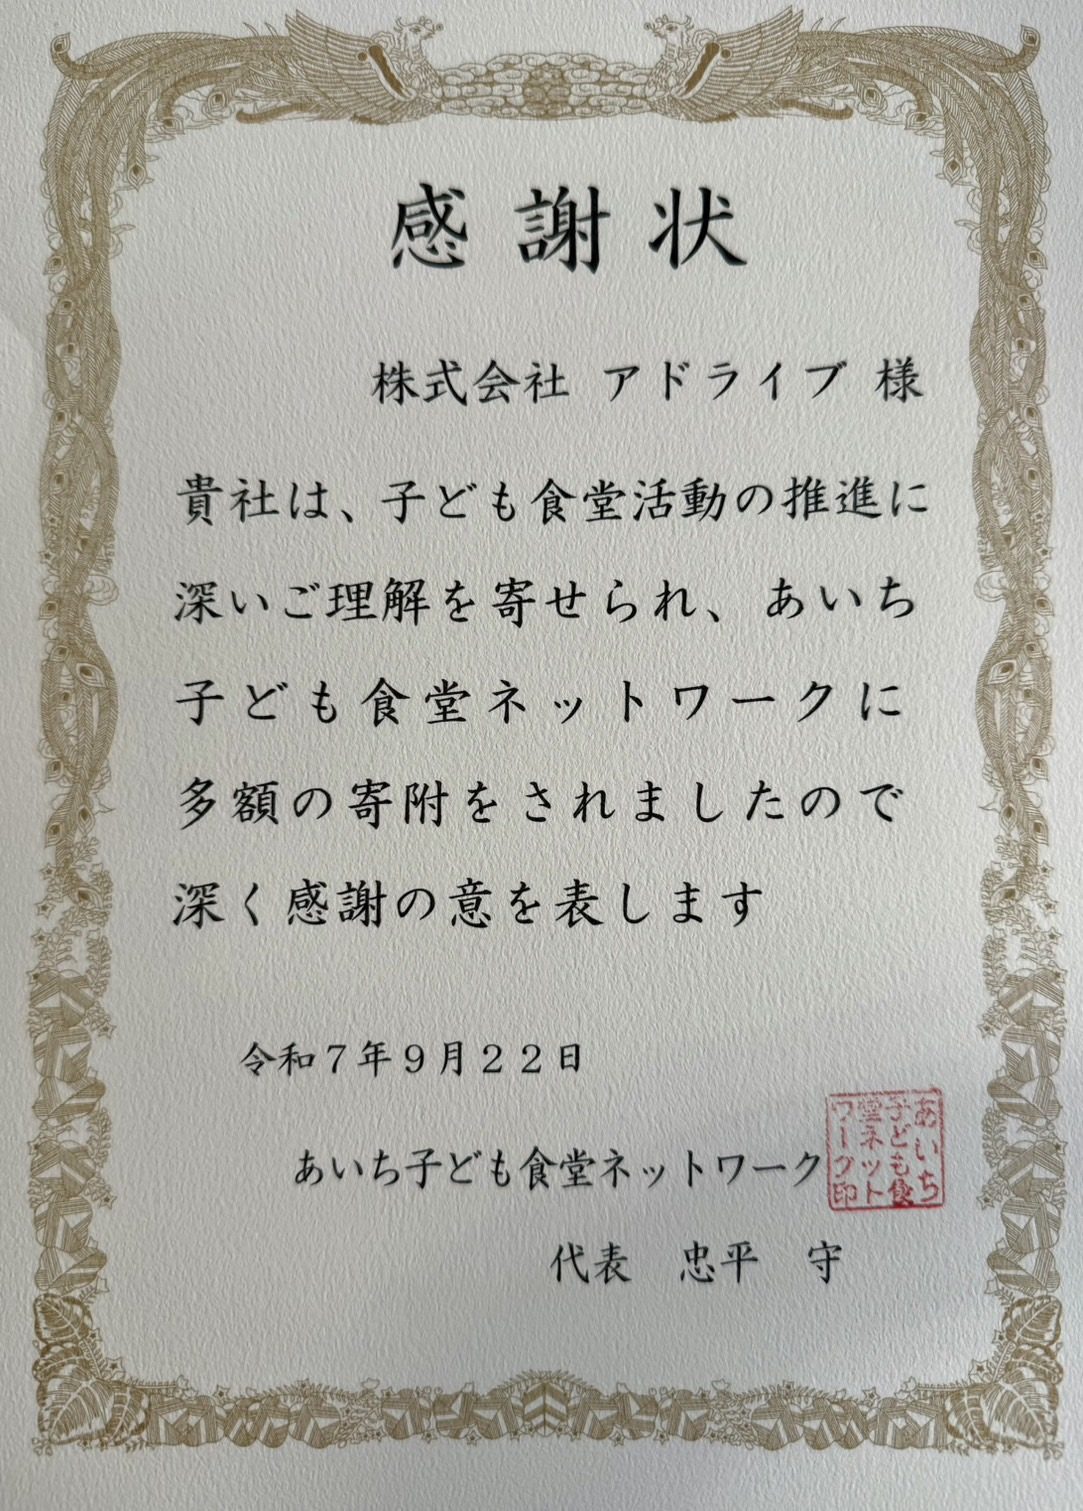 感謝状
株式会社 アドライブ 様
貴社は、子ども食堂活動の推進に
深いご理解を寄せられ、あいち
子ども食堂ネットワークに
多額の寄附をされましたので
深く感謝の意を表します
令和７年９月２２日
あいち子ども食堂ネットワーク
あいち
子ども食
堂ネット
ワーク印
代表　忠平　守